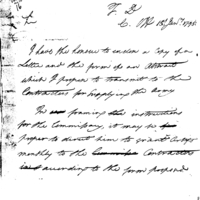 I have the honour to enclose a Copy of a
Letter and the form of an Abstract
which I propose to transmit to the
Contractors for Supplying the Army
In framing the instructions
for the Commissary, it may be
proper to direct him to grant
monthly to the Contractors
according to the form proposed